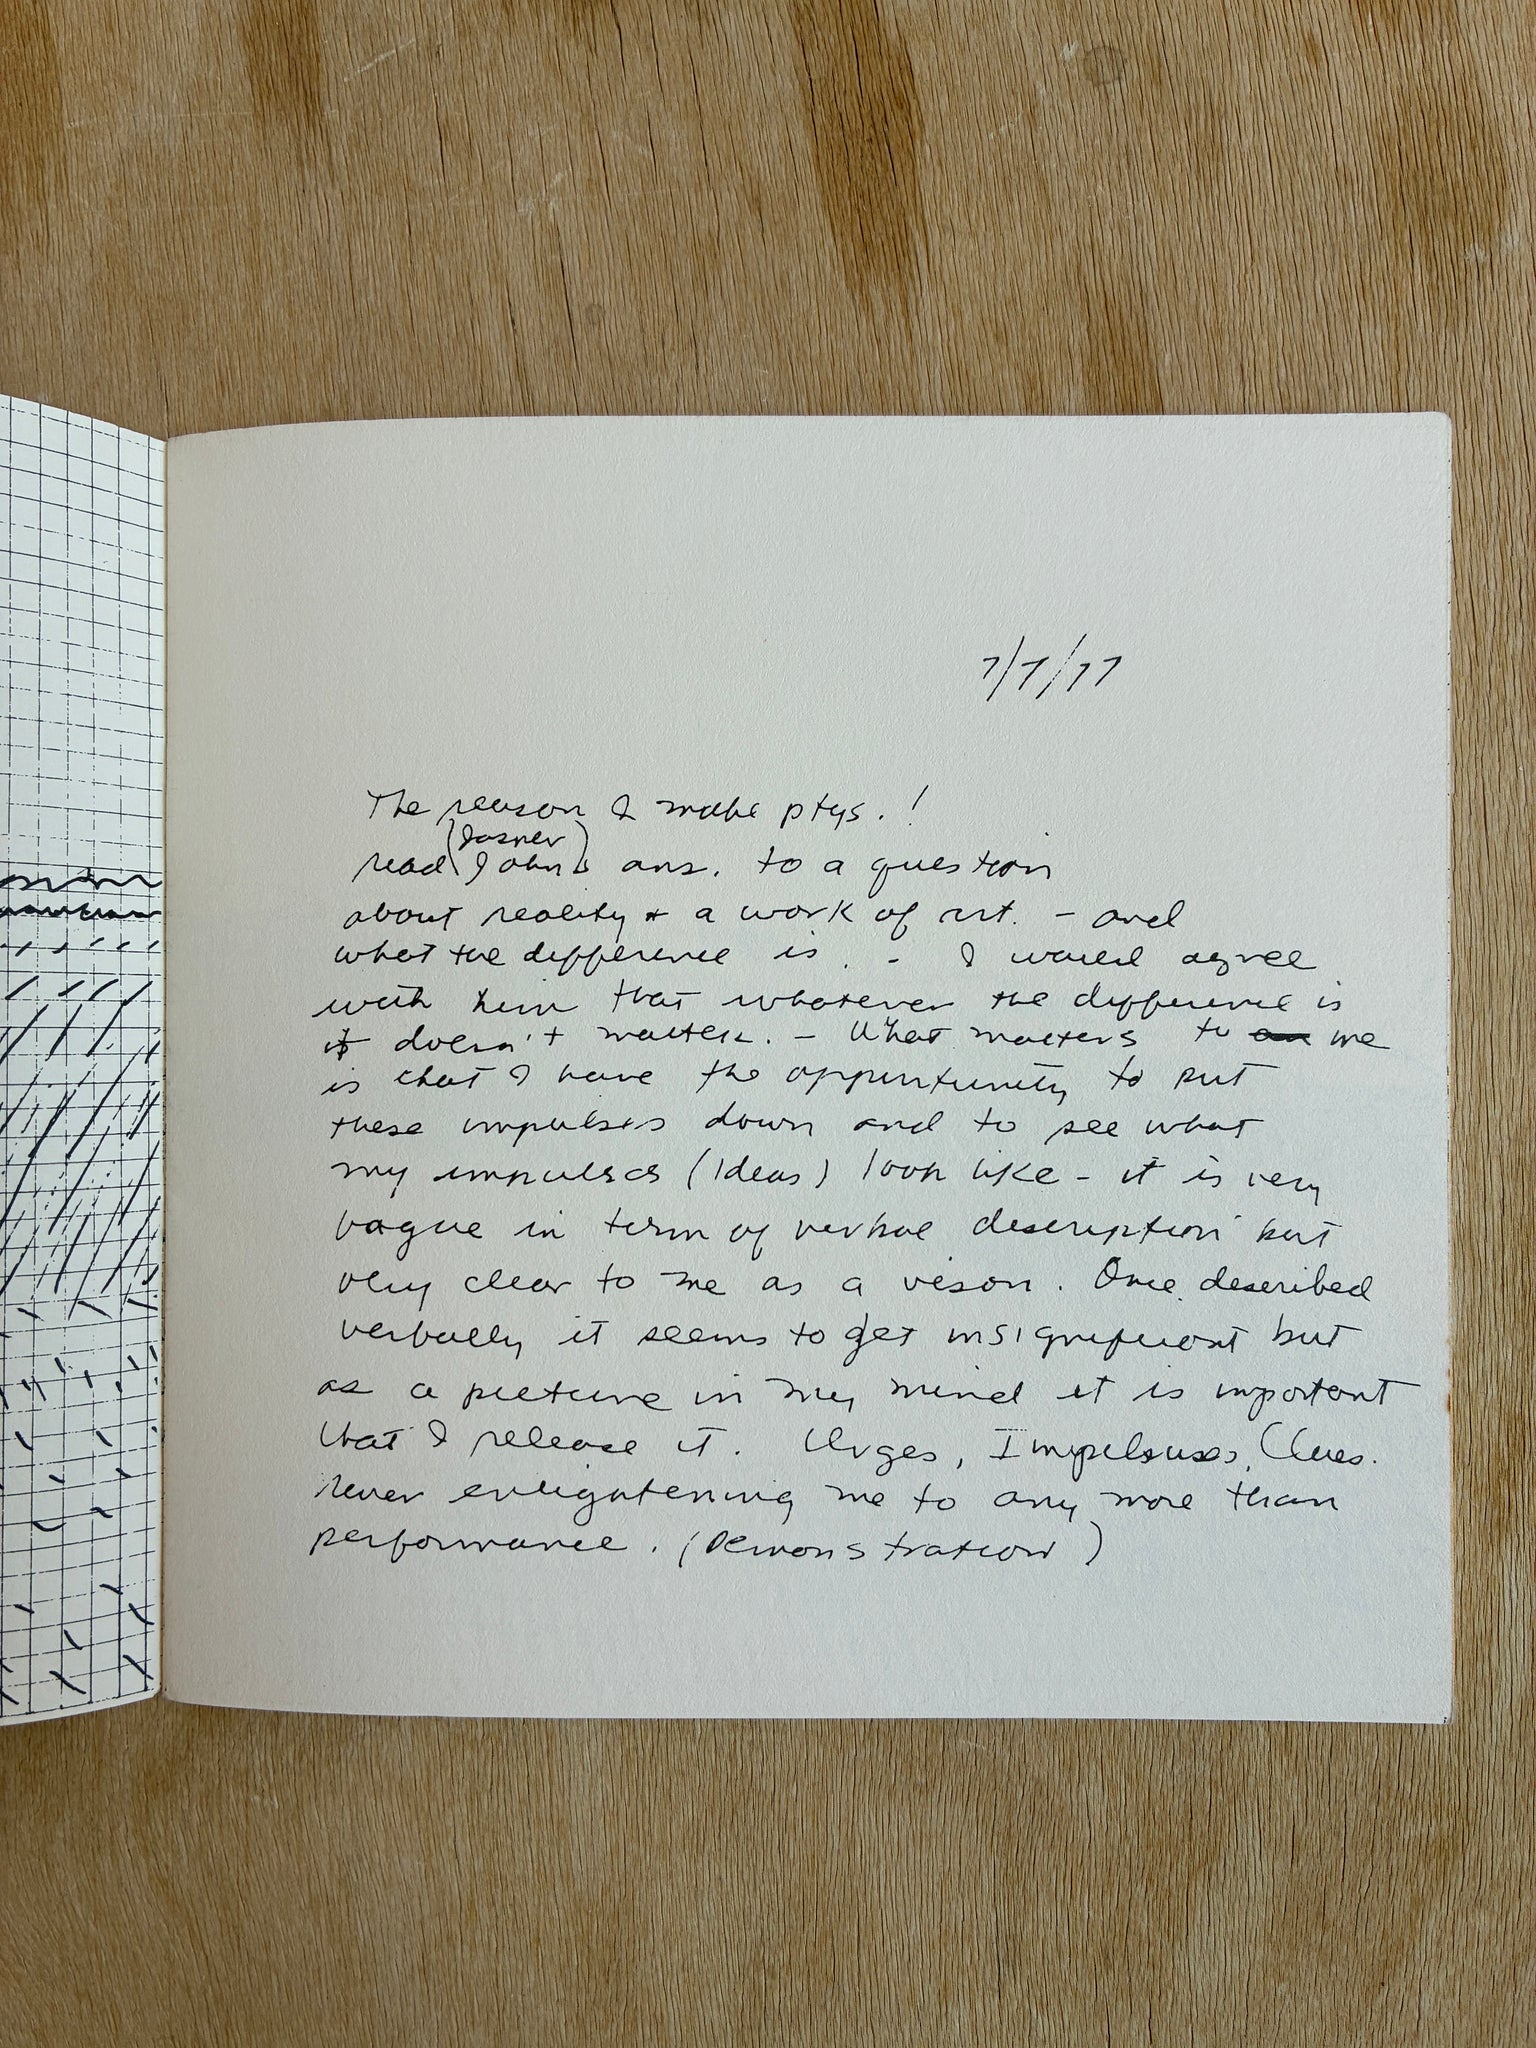 7/7/77
The reason I make ptgs. !
(Jasper)
read John's ans. to a question
about reality & a work of art. - and
what the difference is. - I would agree
with him that whatever the difference is
it doesn't matter. - What matters to me
is that I have the opportunity to put
these impulses down and to see what
my impulses (Ideas) look like - it is very
vague in term of verbal description but
very clear to me as a vison. Once described
verbally it seems to get insignificant but
as a picture in my mind it is important
that I release it. Urges, Impulsuses, Clues.
never enlightening me to any more than
performance. (Demonstration)